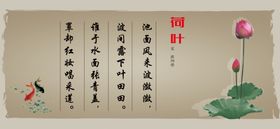 荷叶
宋 欧阳修
池面风来波潋潋,
波间露下叶田田。
谁于水面张青盖,
罩却红妆唱采莲。